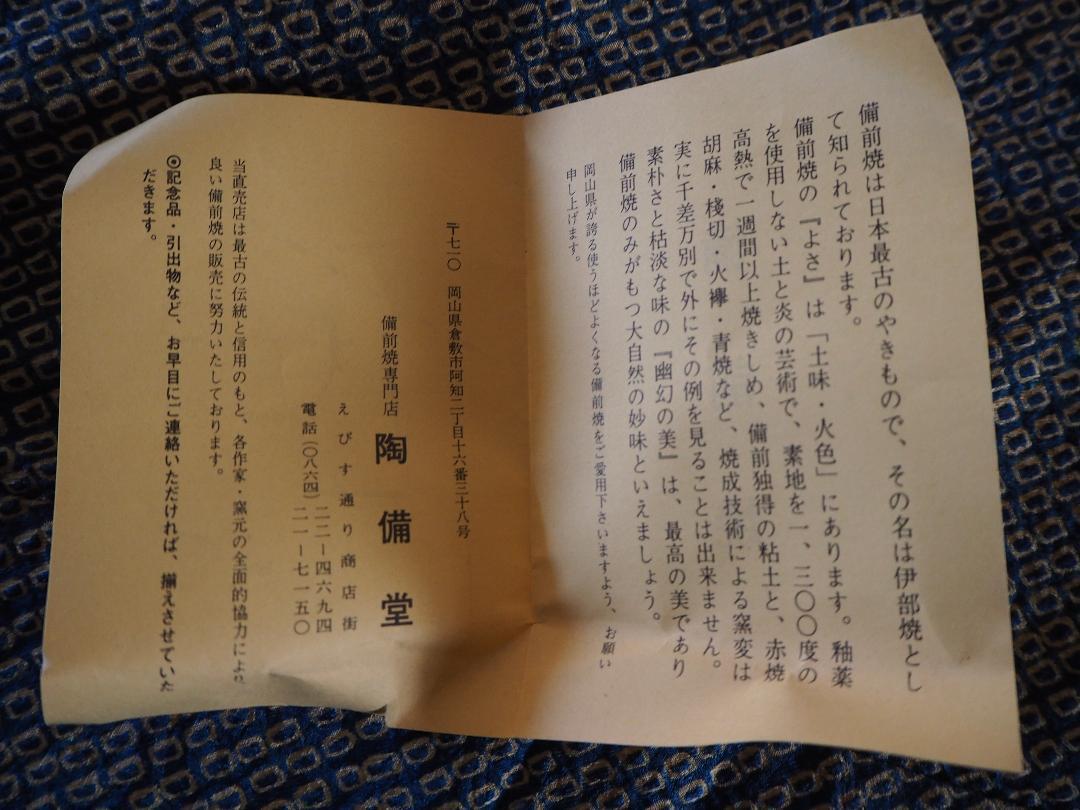 備前焼は日本最古のやきもので、その名は伊部焼とし
て知られております。
備前焼の『よさ』は「土味・火色」にあります。釉薬
を使用しない土と炎の芸術で、素地を一、三〇〇度の
高熱で一週間以上焼きしめ、備前独得の粘土と、赤焼
胡麻・棧切・火襷・青焼など、焼成技術による窯変は
実に千差万別で外にその例を見ることは出来ません。
素朴さと枯淡な味の『幽幻の美』は、最高の美であり
備前焼のみがもつ大自然の妙味といえましょう。
岡山県が誇る使うほどよくなる備前焼をご愛用下さいますよう、お願い
申し上げます。
〒七一〇 岡山県倉敷市阿知二丁目十六番三十八号
備前焼専門店 陶備堂
えびす通り商店街
電話(〇八六四)二二―四六九四
二一―七一五〇
当直売店は最古の伝統と信用のもと、各作家・窯元の全面的協力により
良い備前焼の販売に努力いたしております。
◉記念品・引出物など、お早目にご連絡いただければ、揃えさせていた
だきます。